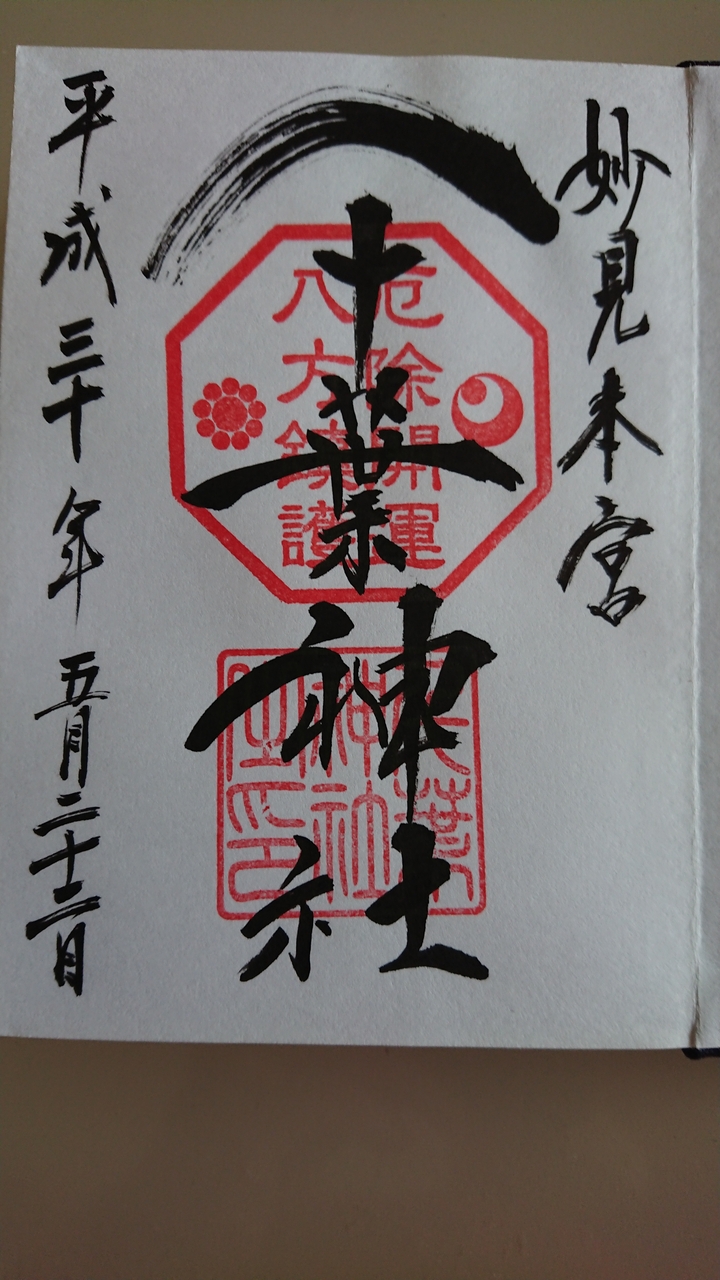 妙見本宮
千葉神社
厄除開運
八方鎮護
千葉
神社
之印
平成三十年五月二十二日